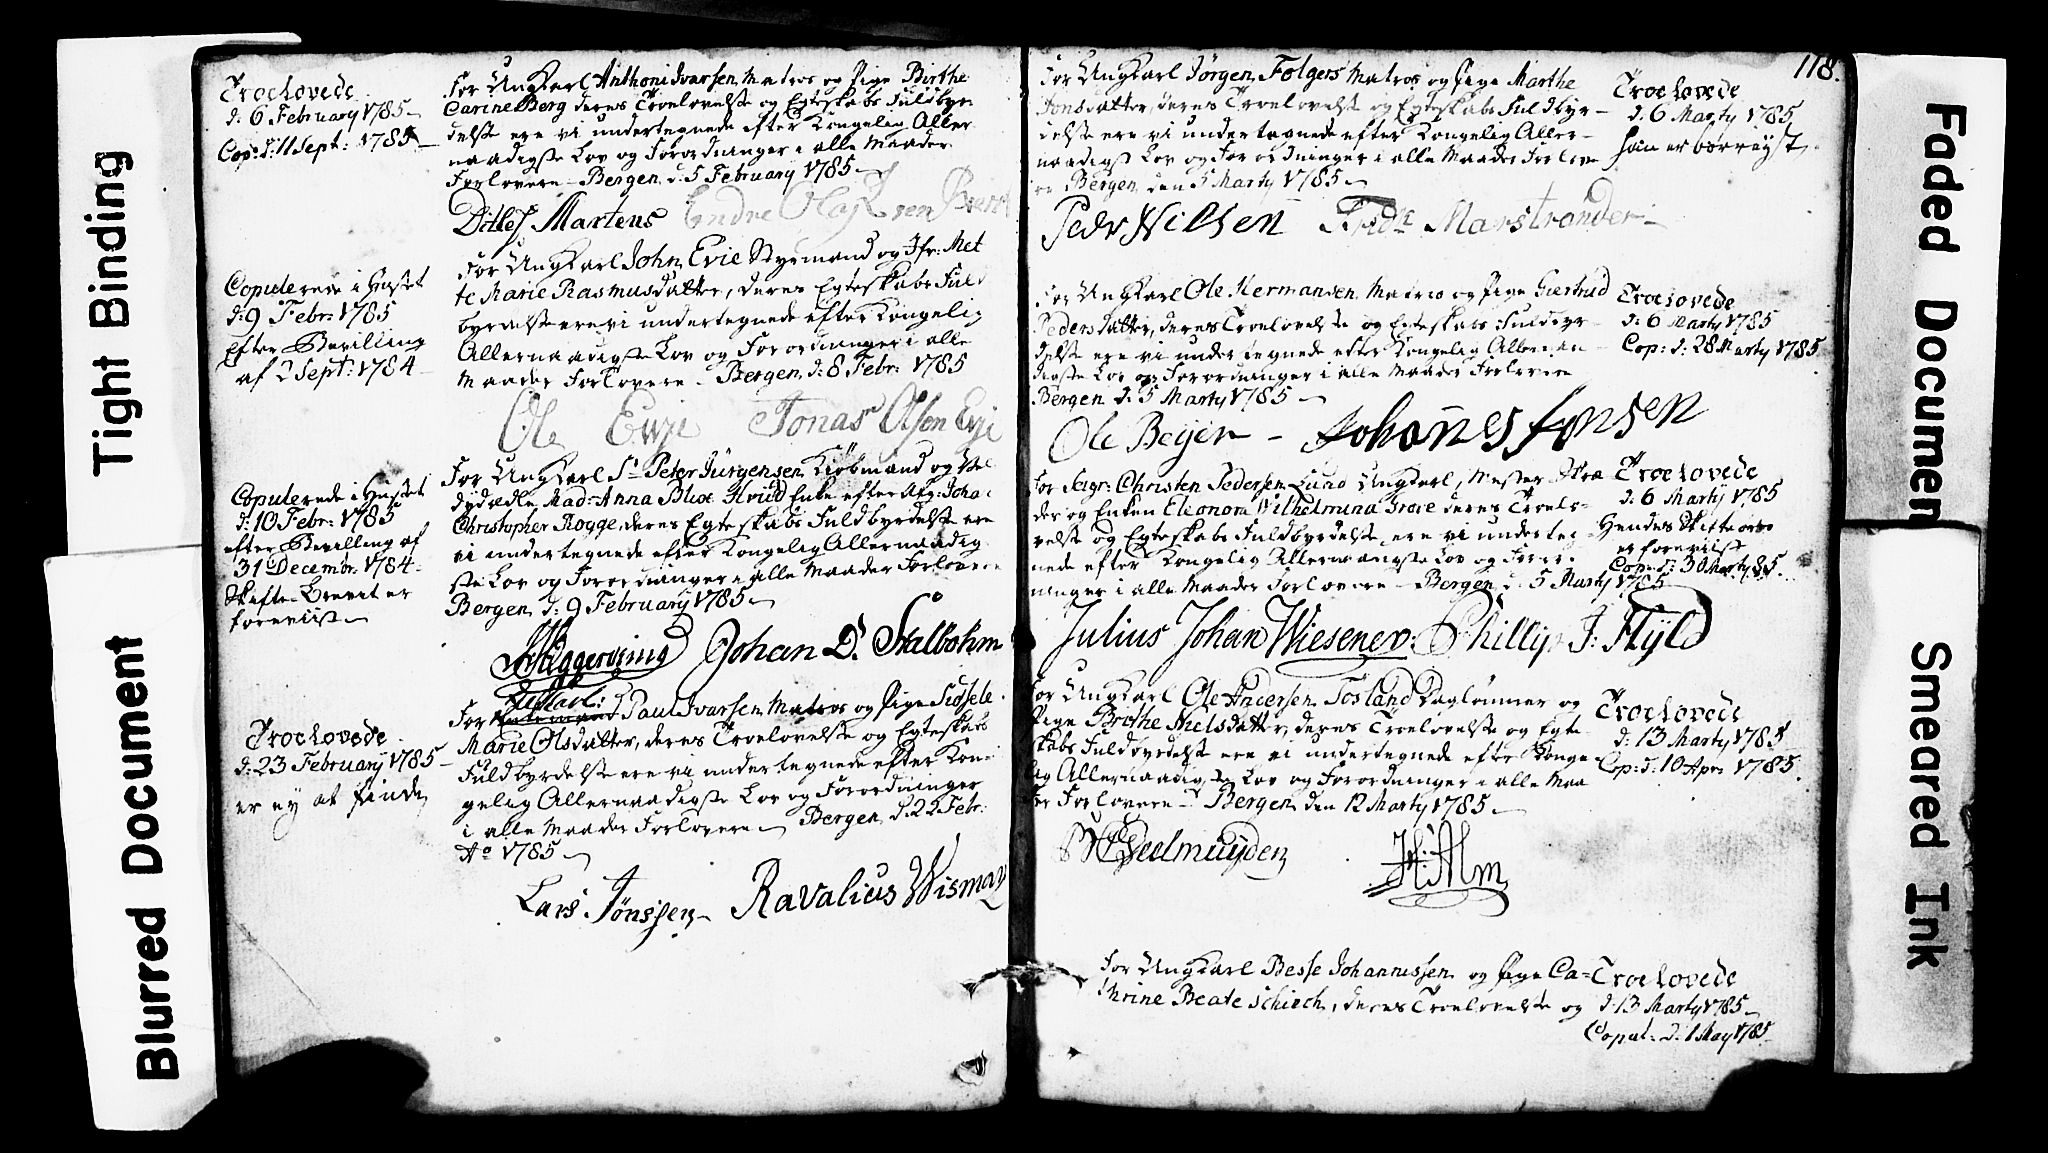 Tight Binding
Blurred Document
Troelovede
d: 6 February 1785
Cop: d: 11 Sept: 1785
For Ungkarl Anthoni Ivarsen Matros og Pige Birthe
Carine Berg deres Troelovelse og Egteskabs Fuldbyr
delse ere vi undertegnede efter Kongelig Aller
naadigste Lov og Forordninger i alle Maader
Forlovere - Bergen d: 5 February 1785
Ditlef Martens Endre Olafsen
Copulerede i Huset
d: 9 Febr: 1785
Efter Bevilling
af 2 Sept: 1784
For Ungkarl John Evie Styrmand og Jfr: Met
te Marie Rasmusdatter, deres Egteskabs Fuld
byrdelse ere vi undertegnede efter Kongelig
Allernaadigste Lov og Forordninger i alle
Maader Forlovere - Bergen d: 8 Febr: 1785
Ole Evje Jonas Olsen Evje
Copulerede i Huset
d: 10 Febr: 1785
efter Bevilling af
31 Decembr: 1784
Skifte Brevet er
foreviist
For Ungkarl Sr Peter Jürgensen Kiøbmand og Vel
dydædle Mad: Anna Blix Hviid Enke efter Afg: Joha
Christopher Rogge, deres Egteskabs Fuldbyrdelse ere
vi undertegnede efter Kongelig Allernaadig
ste Lov og Forordninger i alle Maader Forlovere
Bergen d: 9 February 1785
Johan D. Stalbohm
Troelovede
d: 23 February 1785
er ey at finde
For Paul Ivarsen Matros og Pige Sidsele
Marie Olsdatter, deres Troelovelse og Egteskabs
Fuldbyrdelse ere vi undertegnede efter Kon
gelig Allernaadigste Lov og Forordninger
i alle Maader Forlovere Bergen d: 22 Febr:
Ao 1785
Lars Jønssen Ravalius Wismar
118.
For Ungkarl Jörgen Folgers Matros og Pige Marthe
Jonsdatter, deres Troelovelse og Egteskabs Fuldbyr-
delse ere vi undertegnede efter Kongelig Aller-
naadigst Lov og Forordninger i alle Maader Forlove
re Bergen den 5 Marty 1785
Troelovede
d. 6 Marty 1785
han er bortreyst
Peder Nilsen Fridr Marstrander
For Ungkarl Ole Hermansen Matros og Pige Giertrud
Pedersdatter, deres Troelovelse og Egteskabs Fuldbyr
delse ere vi undertegnede efter Kongelig Allernaa
digste Lov og Forordninger i alle Maader Forlovere
Bergen d: 5 Marty 1785
Troelovede
d: 6 Marty 1785
Cop: d: 28 Marty 1785
Ole Beyer - Johannes Jonsen
For Seigr: Christen Pedersen Lund Ungkarl, Mester Skræ
der og Enken Eleonora Wilhelmina Grove deres Troelo-
velse og Egteskabs Fuldbyrdelse ere vi underteg
nede efter Kongelig Allernaadigste Lov og Forord
ninger i alle Maader Forlovere - Bergen d: 5 Marty 1785
Troelovede
d: 6 Marty 1785
Hendes Skiftebrev
er foreviist
Cop: d: 30 Marty 85.
Julius Johan Wiesener. Phillip J: Flyld
For Ungkarl Ole Andersen Fosland Daglønner og
Pige Birthe Nielsdatter, deres Troelovelse og Egte
skabs Fuldbyrdelse ere vi undertegnede efter Konge
lig Allernaadigste Lov og Forordninger i alle Maa
der Forlovere - Bergen den 12 Marty 1785
Troelovede
d: 13 Marty 1785
Cop: d: 10 Apr: 1785.
Geelmuyden H: Alm
For Ungkarl Besse Johannessen og Pige Ca=
thrine Beate Schiech, deres Troelovelse og
Troelovede
d: 13 Marty 1785
Copul: d: 1 May 1785
Faded Documen
Smeared Ink